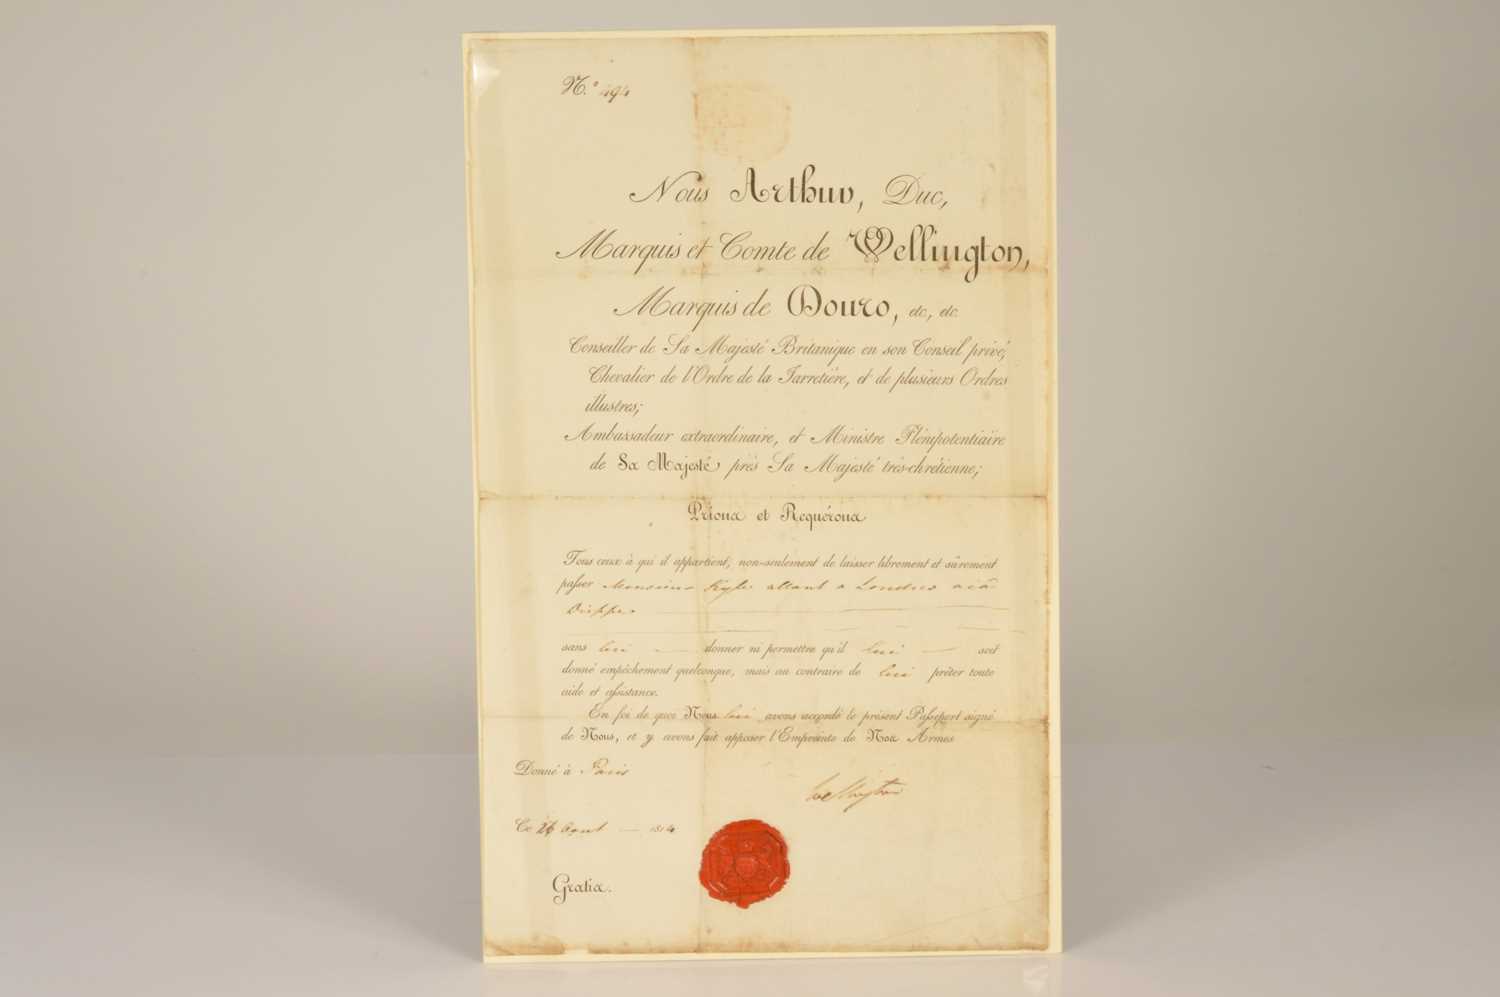 N.° 494
Nous Arthur, Duc,
Marquis et Comte de Wellington,
Marquis de Douro, etc., etc.
Conseiller de Sa Majesté Britanique en son Conseil privé,
Chevalier de l'Ordre de la Jarretière, et de plusieurs Ordres
illustres;
Ambassadeur extraordinaire, et Ministre Plénipotentiaire
de Sa Majesté près Sa Majesté très-chrétienne;
Prions et Requérons
Tous ceux à qui il appartient, non-seulement de laisser librement et sûrement
passer Monsieur Kyle allant a Londres viâ
Dieppe
sans lui donner ni permettre qu'il lui soit
donné empêchement quelconque, mais au contraire de lui prêter toute
aide et assistance.
En foi de quoi Nous lui avons accordé le présent Passeport signé
de Nous, et y avons fait apposer l'Empreinte de Nos Armes
Donné à Paris
Wellington
Ce 26 Aout 1814
Gratis.